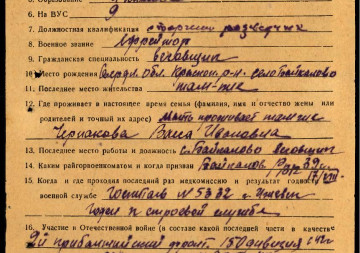 6. На ВУС 9
7. Должностная квалификация старший разведчик
8. Военное звание Ефрейтор
9. Гражданская специальность весовщик
10. Место рождения Свердл. обл. Краснопол. р-н. село Байкалово
11. Последнее место жительства там-же
12. Где проживает в настоящее время семья (фамилия, имя и отчество жены или
родителей и точный их адрес) мать проживает там же
Ивановна
13. Последнее место работы и должность с. Байкалово весовщик
14. Каким райгорвоенкоматом и когда призван РВК
15. Когда и где проходил последний раз медкомиссию и результат годности к
военной службе Госпиталь № 5332 г. Ижевск
Годен к строевой службе
16. Участие в Отечественной войне (в составе какой части и в качестве
2й прибалтийский фронт. 150 дивизия с 42 г